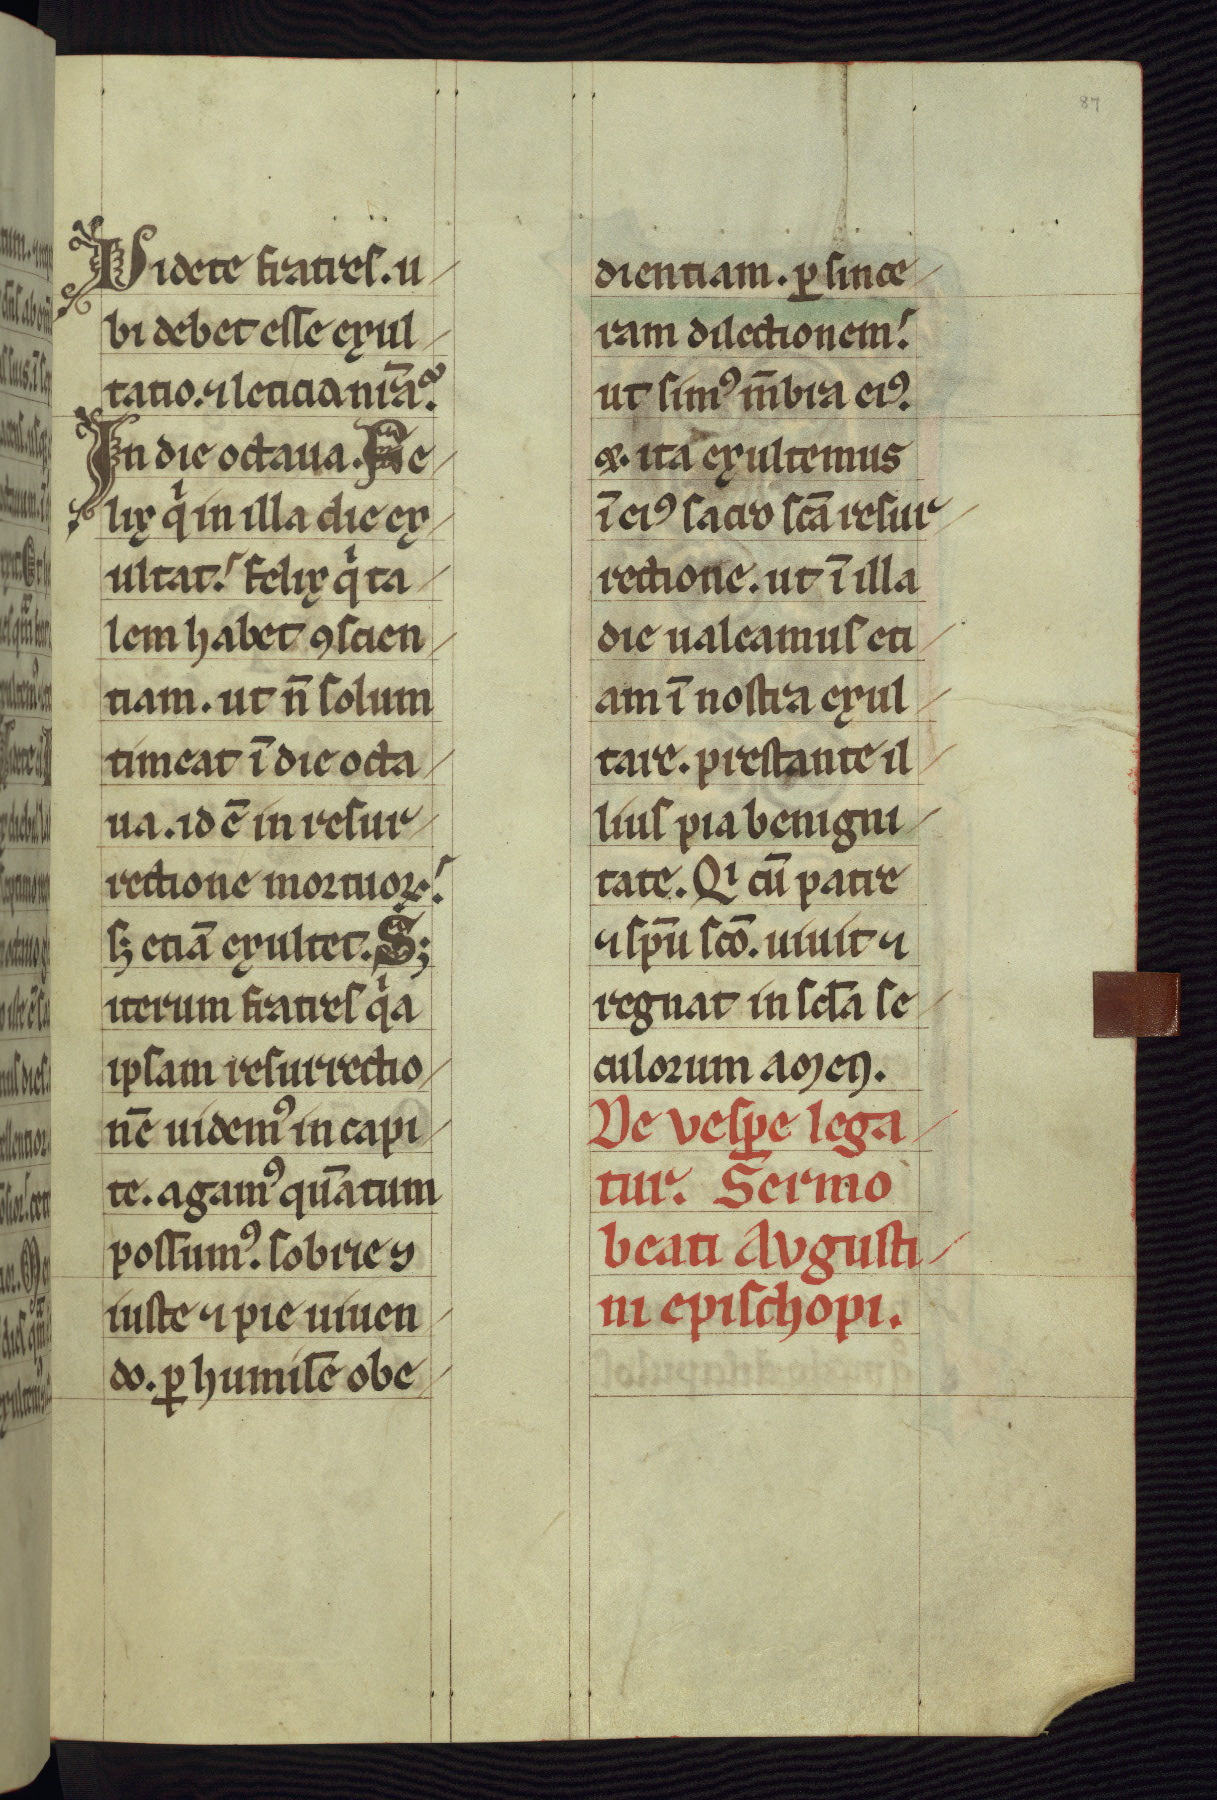 87
Videte fratres. u
bi debet esse exul
tatio. ⁊ leticia nr̄a.
In die octaua. Fe
lix qͥ in illa die ex
ultat! felix qͥ ta
lem habet ꝯscien
tiam. ut n̄ solum
timeat ī die octa
ua. id ē in resur
rectione mortuoꝝ!
sꝫ etiā exultet. Sꝫ
iterum fratres qͥa
ipsam resurrectio
nē uidemꝰ in capi
te. agamꝰ quātum
possumꝰ. sobrie ⁊
iuste ⁊ pie uiuen
do. ꝑ humilē obe
dientiam. ꝑ since
ram dilectionem!
ut simꝰ m̄bra eiꝰ.
&. ita exultemus
ī eiꝰ sacro scā resur
rectione. ut ī illa
die ualeamus eti
am ī nostra exul
tare. prestante il
lius pia benigni
tate. Qi cū patre
⁊ sp̄u sco̅. uiuit ⁊
regnat in sclā se
culorum amen.
De vesꝑe lega
tur. Sermo
beati Avgusti
ni epischopi.